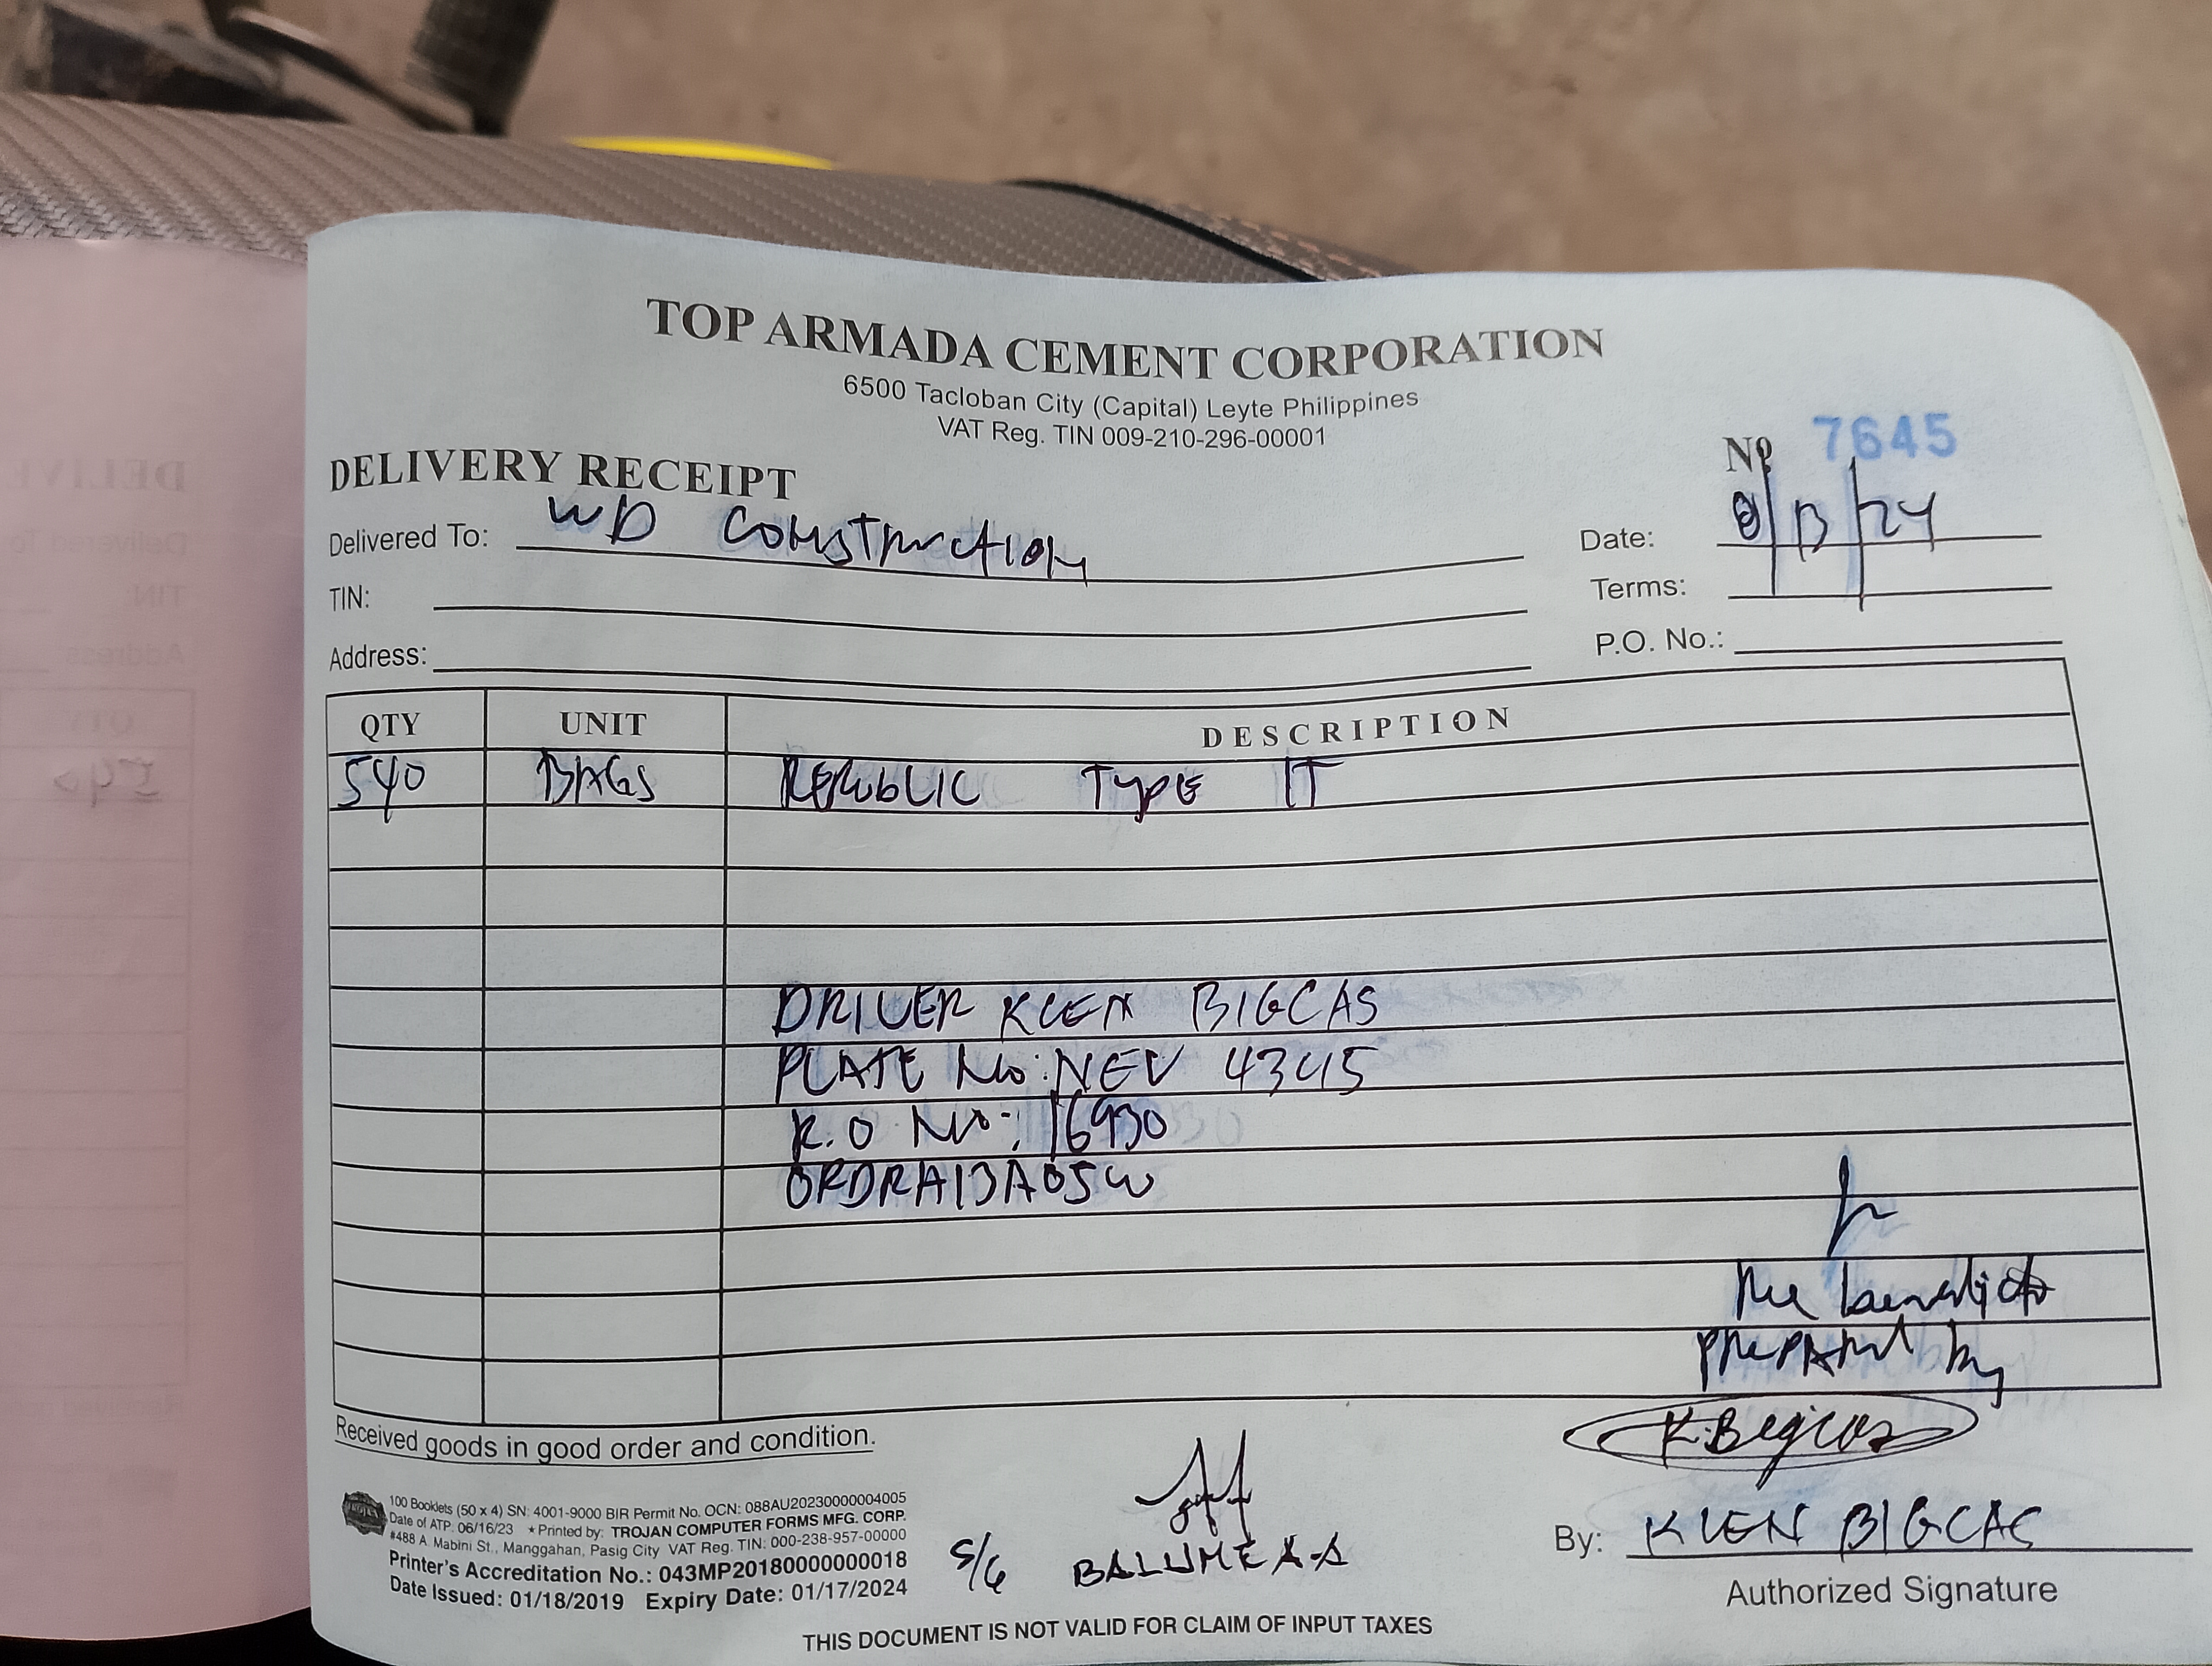 TOP ARMADA CEMENT CORPORATION
6500 Tacloban City (Capital) Leyte Philippines
VAT Reg. TIN 009-210-296-00001
DELIVERY RECEIPT
Nº 7645
Delivered To: WD Construction
Date: /13/24
TIN:
Terms:
Address:
P.O. No.:
QTY UNIT DESCRIPTION
540 BAGS REPUBLIC TYPE IT
DRIVER KLEN BIGCAS
PLATE No: NEV 4345
R.O No: 16930
The benedicto
prepared by
K.Bigcas
Received goods in good order and condition.
100 Booklets (50 x 4) SN: 4001-9000 BIR Permit No. OCN: 088AU20230000004005
Date of ATP: 06/16/23 ★Printed by: TROJAN COMPUTER FORMS MFG. CORP.
#488 A. Mabini St., Manggahan, Pasig City VAT Reg. TIN: 000-238-957-00000
Printer's Accreditation No.: 043MP20180000000018
Date Issued: 01/18/2019 Expiry Date: 01/17/2024
S/G
By: KLEN BIGCAS
Authorized Signature
THIS DOCUMENT IS NOT VALID FOR CLAIM OF INPUT TAXES